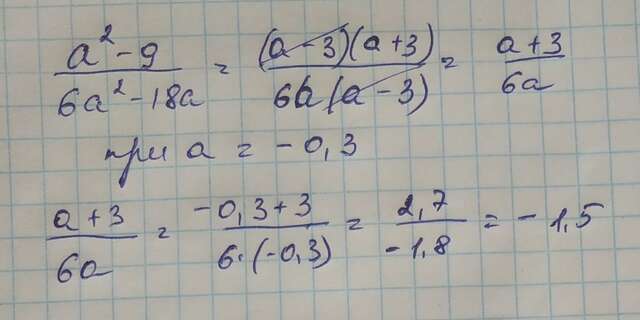 a² - 9 / 6a² - 18a = (a - 3)(a + 3) / 6a(a - 3) = a + 3 / 6a
при a = - 0,3
a + 3 / 6a = -0,3 + 3 / 6·(-0,3) = 2,7 / -1,8 = - 1,5